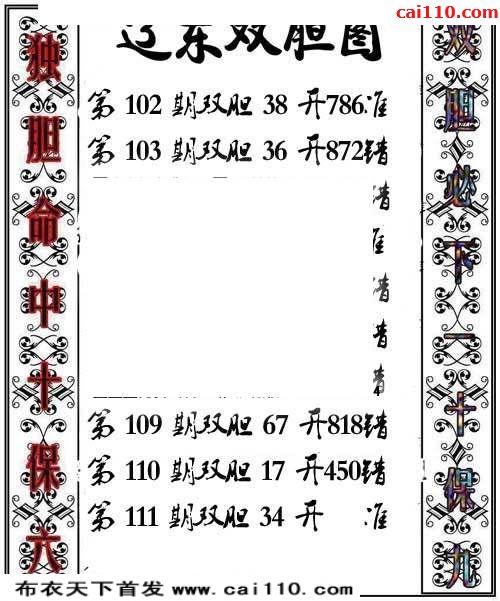 cai110.com
辽东双胆图
独胆命中十保六
第 102 期双胆 38 开786准
第 103 期双胆 36 开872错
错
准
错
错
错
第 109 期双胆 67 开818错
第 110 期双胆 17 开450错
第 111 期双胆 34 开 准
双胆必下一十保九
布衣天下首发 www.cai110.com